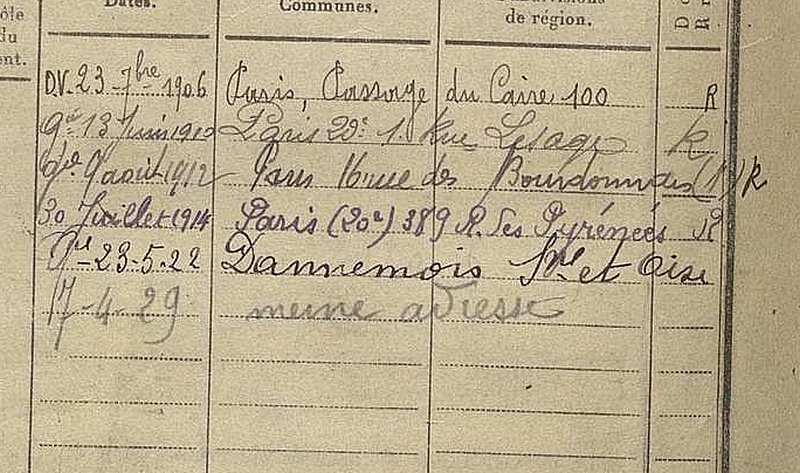 ôle
du
ent.
Dates.
Communes.
de région.
D.V. 23-7bre 1906 Paris, Passage du Caire 100 R
Gie 13 Juin 1910 Paris 20e 1 Rue Lesage R
Gie 9 août 1912 Paris 16 rue des Bourdonnais (1) R
30 Juillet 1914 Paris (20e) 389 R. des Pyrénées R
Gie 23-5-22 Dannemois Sne et Oise
17-4-29 meme adresse